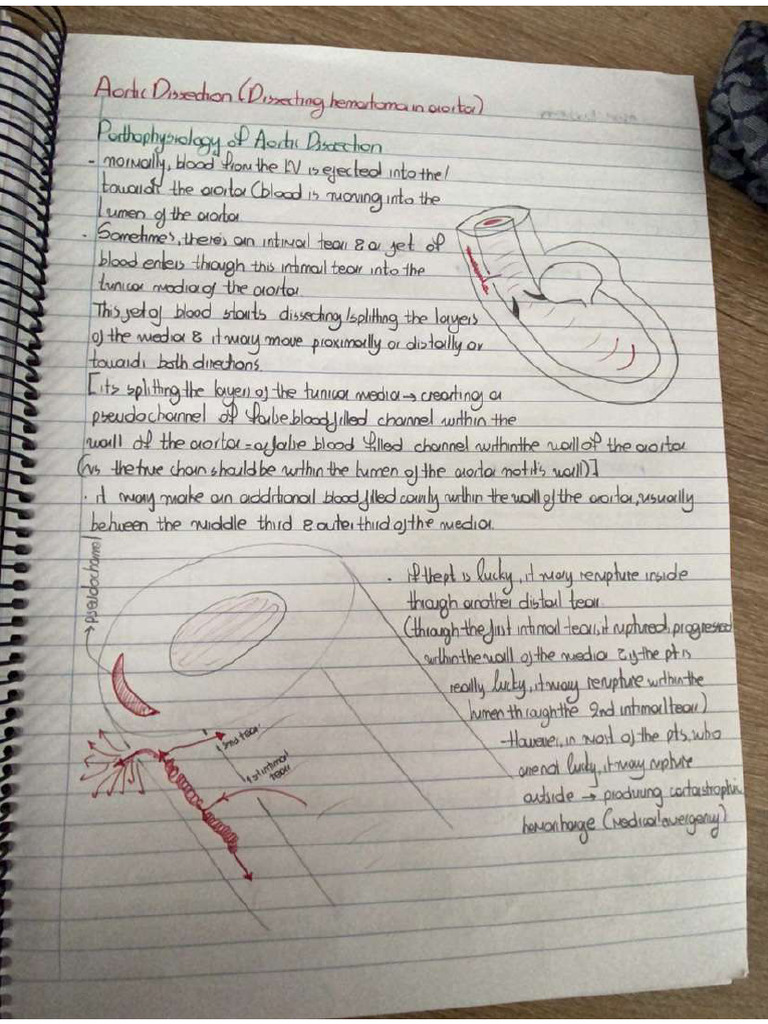 Aortic Dissection (Dissecting hematoma in aorta)
Pathophysiology of Aortic Dissection
- normally, blood from the LV is ejected into the/
towards the aorta (blood is moving into the
lumen of the aorta
. Sometimes, there's an intimal tear & a jet of
blood enters through this intimal tear into the
tunica media of the aorta
This jet of blood starts dissecting/splitting the layers
of the media & it may move proximally or distally or
towards both directions
[its splitting the layers of the tunica media → creating a
pseudochannel of false blood filled channel within the
wall of the aorta = a false blood filled channel within the wall of the aorta
(vs the true chan should be within the lumen of the aorta not it's wall)]
. it may make an additional blood filled cavity within the wall of the aorta, usually
between the middle third & outer third of the media.
→ pseudochannel
. if the pt is lucky, it may rerupture inside
through another distal tear.
(through the first intimal tear, it ruptured, progressed
within the wall of the media & if the pt is
really lucky, it may rerupture within the
lumen through the 2nd intimal tear)
- However, in most of the pts, who
are not lucky, it may rupture
outside → producing catastrophic
hemorrhage (Medical emergency)
2nd tear
1st intimal
tear